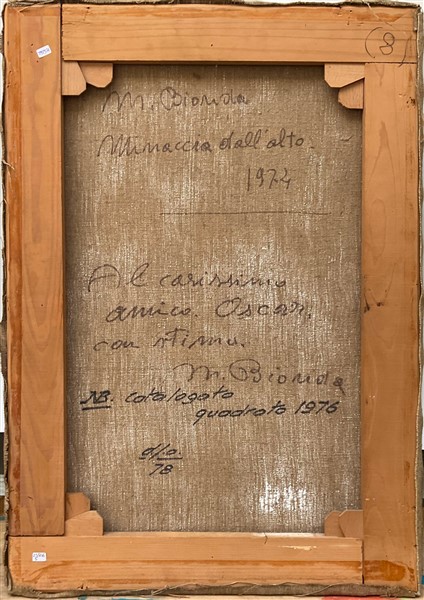 8
M. Bionda
Minaccia dall'alto.
1974
Al carissimo
amico. Oscar,
con stima.
M. Bionda
NB. catalogato
quadrato 1976
78